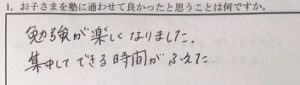 1, お子さまを塾に通わせて良かったと思うことは何ですか。
勉強が楽しくなりました。
集中してできる時間がふえた。